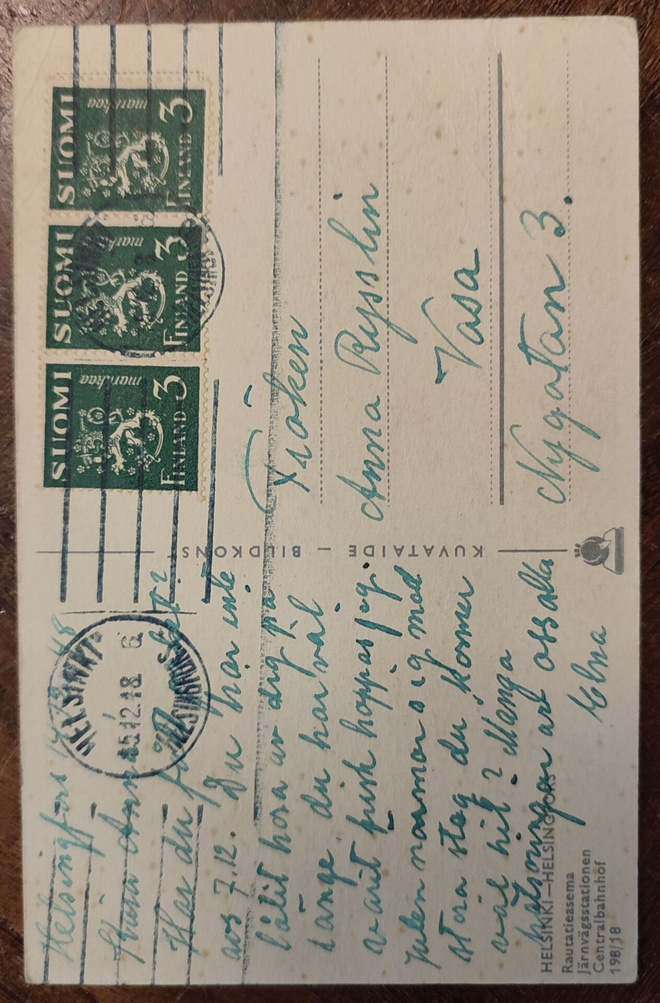 Helsingfors 48
Kära Anna!
Har du fått
avs 7.12. Du har inte
låtit höra av dig på
länge du har väl
varit frisk hoppas jag.
Julen närmar sig med
stora steg du kommer
väl hit? Många
hälsningar av oss alla
Elna
HELSINKI—HELSINGFORS
Rautatieasema
Järnvägsstationen
Centralbahnhof
198/18
KUVATAIDE — BILDKONST
HELSINKI
15.12.48
HELSINGFORS
SUOMI
markkaa
FINLAND 3
SUOMI
markkaa
FINLAND 3
SUOMI
markkaa
FINLAND 3
Fröken
Anna Rysslin
Vasa
Nygatan 3.